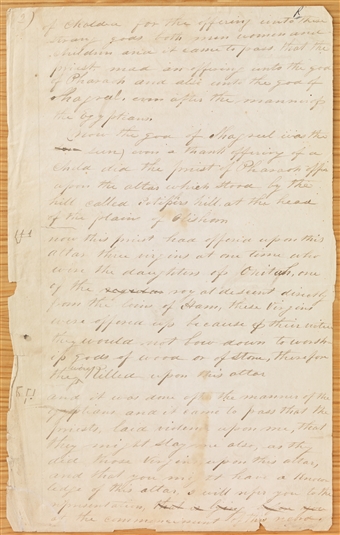 of Chaldea for the offering unto these
strang gods both men women and
children and it came to pass that the
priest mad an offering unto the god
of Pharaoh and also unto the god of
Shagreel even after the manner of
the Egyptians
Now the god of Shagreel was the
sun even a thank offering of a
child did the priest of Pharaoh offer
upon the altar which stood by the
hill called Potiphers hill at the head
of the plains of Olishem
now this priest had offered upon this
altar three virgins at one time who
were the daughters of Onitah, one
of the royal descent directly
from the loins of Ham, these virgins
were offered up because of their virtue
they would not bow down to worsh-
ip gods of wood or of stone, therefore
they were killed upon this altar
and it was done after the manner of the
Egyptians and it came to pass that the
priests laid violence upon me, that
they might slay me also, as they
did those virgins upon this altar,
and that you might have a know
ledge of this altar, I will refer you to the
representation,
at the commencement of this